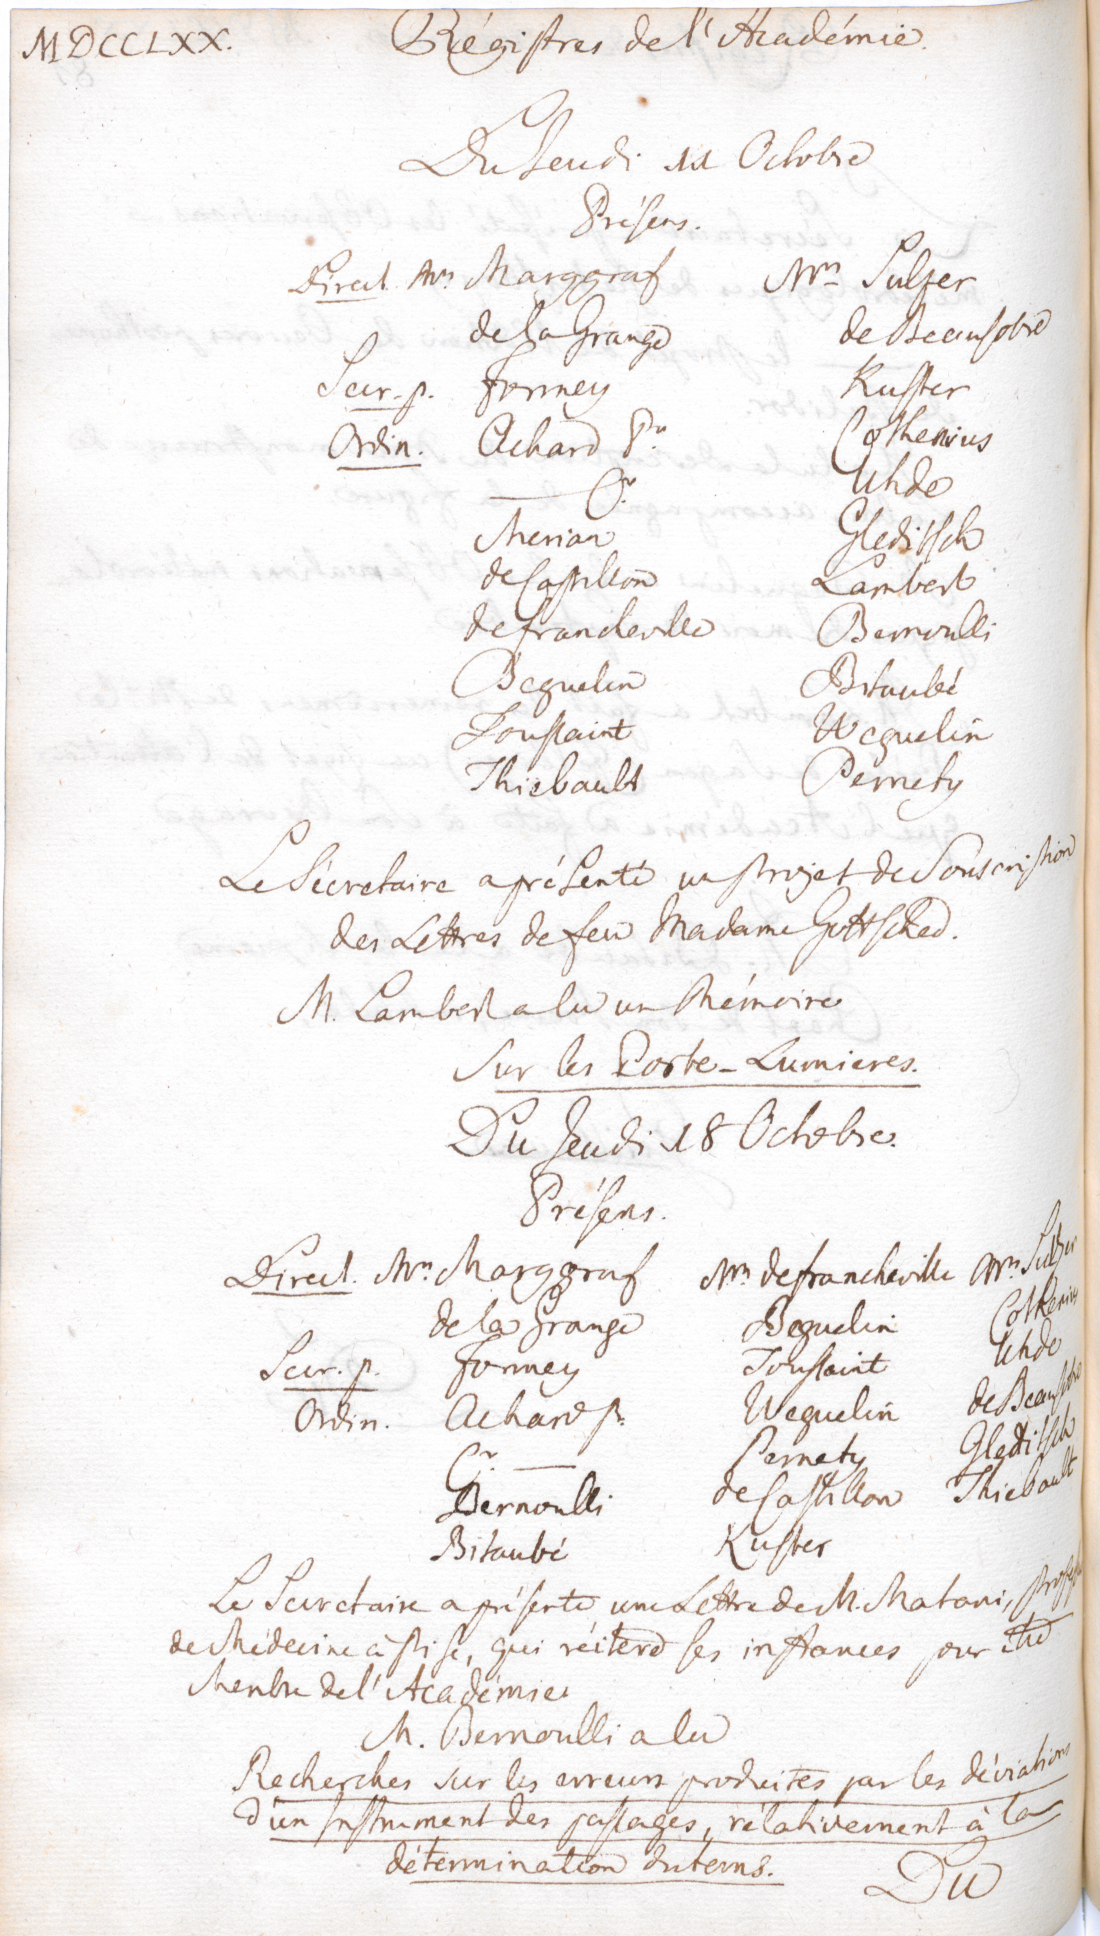 MDCCLXX. Régistres de l'Académie.
Du Jeudi 11 Octobre
Présens.
Direct. Mrs Marggraf
de la Grange
Secr. p. Formey
Ordin. Achard Pr.
——— Cr.
Merian
de Castillon
de francheville
Beguelin
Toussaint
Thiebault
Mrs Sulzer
de Beausobre
Kuster
Cothenius
Uhde
Gleditsch
Lambert
Bernoulli
Bitaubé
Weguelin
Pernety
Le Sécretaire a présenté un projet de Souscription
des Lettres de feu Madame Gottsched.
M. Lambert a lu un Mémoire
sur les Porte-Lumieres.
Du Jeudi 18 Octobre.
Présens.
Direct. Mrs Marggraf
de la Grange
Secr. p. Formey
Ordin. Achard p.
Cr. ———
Bernoulli
Bitaubé
Mrs de francheville
Beguelin
Toussaint
Weguelin
Pernety
de Castillon
Kuster
Mrs Sulzer
Cothenius
Uhde
de Beausobre
Gleditsch
Thiebault
Le Secretaire a présenté une Lettre de M. Matani,
de Médecine à Pise, qui réitere ses instances pour être
Membre de l'Académie.
M. Bernoulli a lu
Recherches sur les erreurs produites par les déviations
d'un Instrument des passages, rélativement à la
détermination du tems.
Du